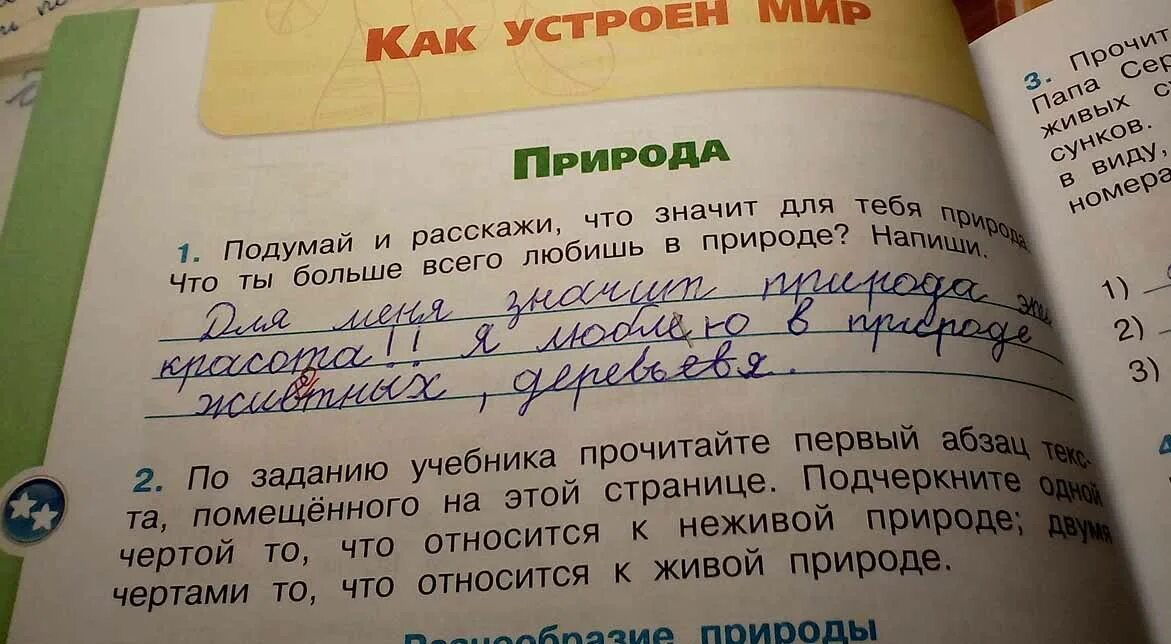 КАК УСТРОЕН МИР
ПРИРОДА
1. Подумай и расскажи, что значит для тебя природа.
Что ты больше всего любишь в природе? Напиши.
Для меня значит природа это
красота!! Я люблею в природе
животных, деревьевя.
2. По заданию учебника прочитайте первый абзац текс-
та, помещённого на этой странице. Подчеркните одной
чертой то, что относится к неживой природе; двумя
чертами то, что относится к живой природе.
Разнообразие природы
3. Прочит
Папа Сер
живых с
сунков.
в виду,
номера
1)
2)
3)